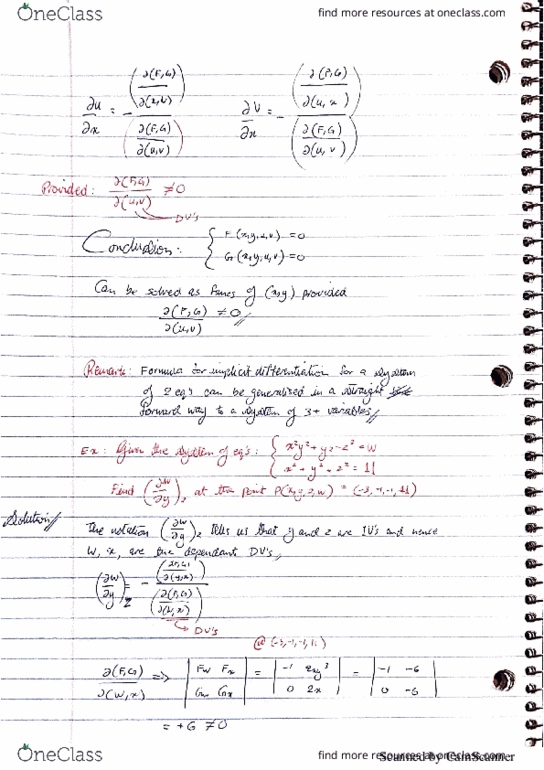 OneClass
find more resources at oneclass.com
∂u/∂x = - (∂(F,G)/∂(x,v)) / (∂(F,G)/∂(u,v))    ∂v/∂x = - (∂(F,G)/∂(u,x)) / (∂(F,G)/∂(u,v))
Provided: ∂(F,G)/∂(u,v) ≠ 0
DV's
Conclusion: { F(x,y,u,v) = 0
G(x,y,u,v) = 0
Can be solved as funcs of (x,y) provided
∂(F,G)/∂(u,v) ≠ 0
Remark: Formula for implicit differentiation for a system
of 2 eq's can be generalized in a straight
forward way to a system of 3+ variables
Ex: Given the system of eq's: { x²y² + yz - z² = w
x² + y² + z² = 11
Find (∂w/∂y)z at the point P(x,y,z,w) = (-3,-1,-1,11)
Solution
The notation (∂w/∂y)z tells us that y and z are IV's and hence
w, x, are the dependant DV's
(∂w/∂y)z = - (∂(F,G)/∂(y,x)) / (∂(F,G)/∂(w,x))
DV's
∂(F,G)/∂(w,x) => | Fw Fx | = | -1 2xy² | = | -1 -6 |
| Gw Gx | | 0 2x | | 0 -6 |
= +6 ≠ 0
OneClass
find more resources at oneclass.com
Scanned by CamScanner